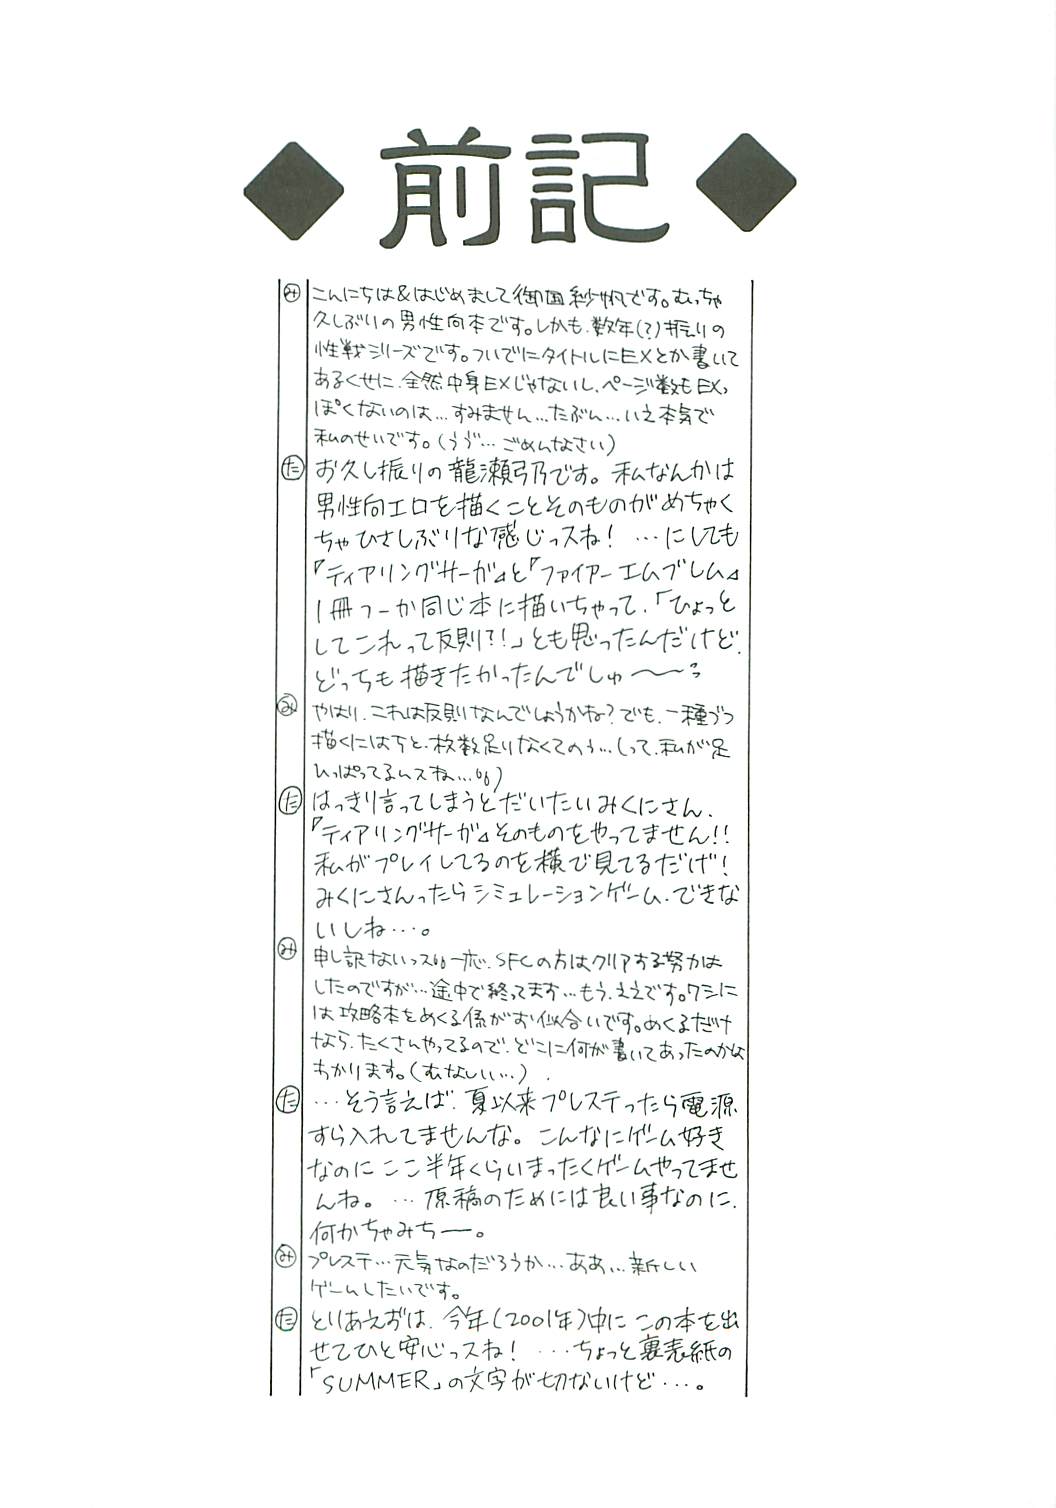 前記
み こんにちは&はじめまして御国紗帆です。むっちゃ
久しぶりの男性向本です。しかも、数年(?)振りの
性戦シリーズです。ついでにタイトルにEXとか書いて
あるくせに、全然中身EXじゃないし、ページ数もEXっ
ぽくないのは…すみません…たぶん…いえ本気で
私のせいです。(うづ…ごめんなさい)
た お久し振りの龍瀬弓乃です。私なんかは
男性向エロを描くことそのものがめちゃく
ちゃひさしぶりな感じっスね! …にしても
『ティアリングサーガ』と『ファイアーエムブレム』
1冊つーか同じ本に描いちゃって、「ひょっと
してこれって反則?!」とも思ったんだけど、
どっちも描きたかったんでしゅ〜〜
み やはり、これは反則なんでしょうかね?でも、一種づつ
描くにはちと、枚数足りなくてのう…(って、私が足
ひっぱってるんスね…)
た はっきり言ってしまうとだいたいみくにさん、
『ティアリングサーガ』そのものをやってません!!
私がプレイしてるのを横で見てるだけ!
みくにさんったらシミュレーションゲーム、できな
いしね…。
み 申し訳ないっス 一応、SFCの方はクリアする努力は
したのですが…途中で終ってます…もう、ええです。ワシに
は攻略本をめくる係がお似合いです。めくるだけ
なら、たくさんやってるので、どこに何が書いてあったのかわ
かります。(むなしい…)
た …そう言えば、夏以来プレステったら電源
すら入れてませんな。こんなにゲーム好き
なのにここ半年くらいまったくゲームやってませ
んね。…原稿のためには良い事なのに、
何かちゃみちー。
み プレステ…元気なのだろうか…ああ…新しい
ゲームしたいです。
た とりあえずは、今年(2001年)中にこの本を出
せてひと安心っスね! …ちょっと裏表紙の
「SUMMER」の文字が切ないけど…。